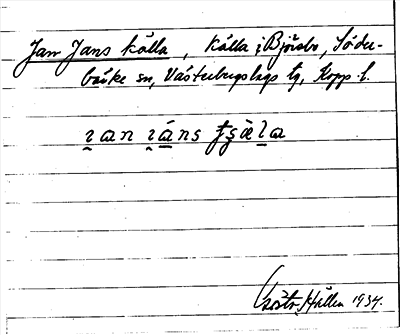 Jan Jans källa, källa i Björsbo, Söder-
bärke sn, Västerbergslags tg, Kopp. l.
ɪan ɪáns
Hällen 1934.